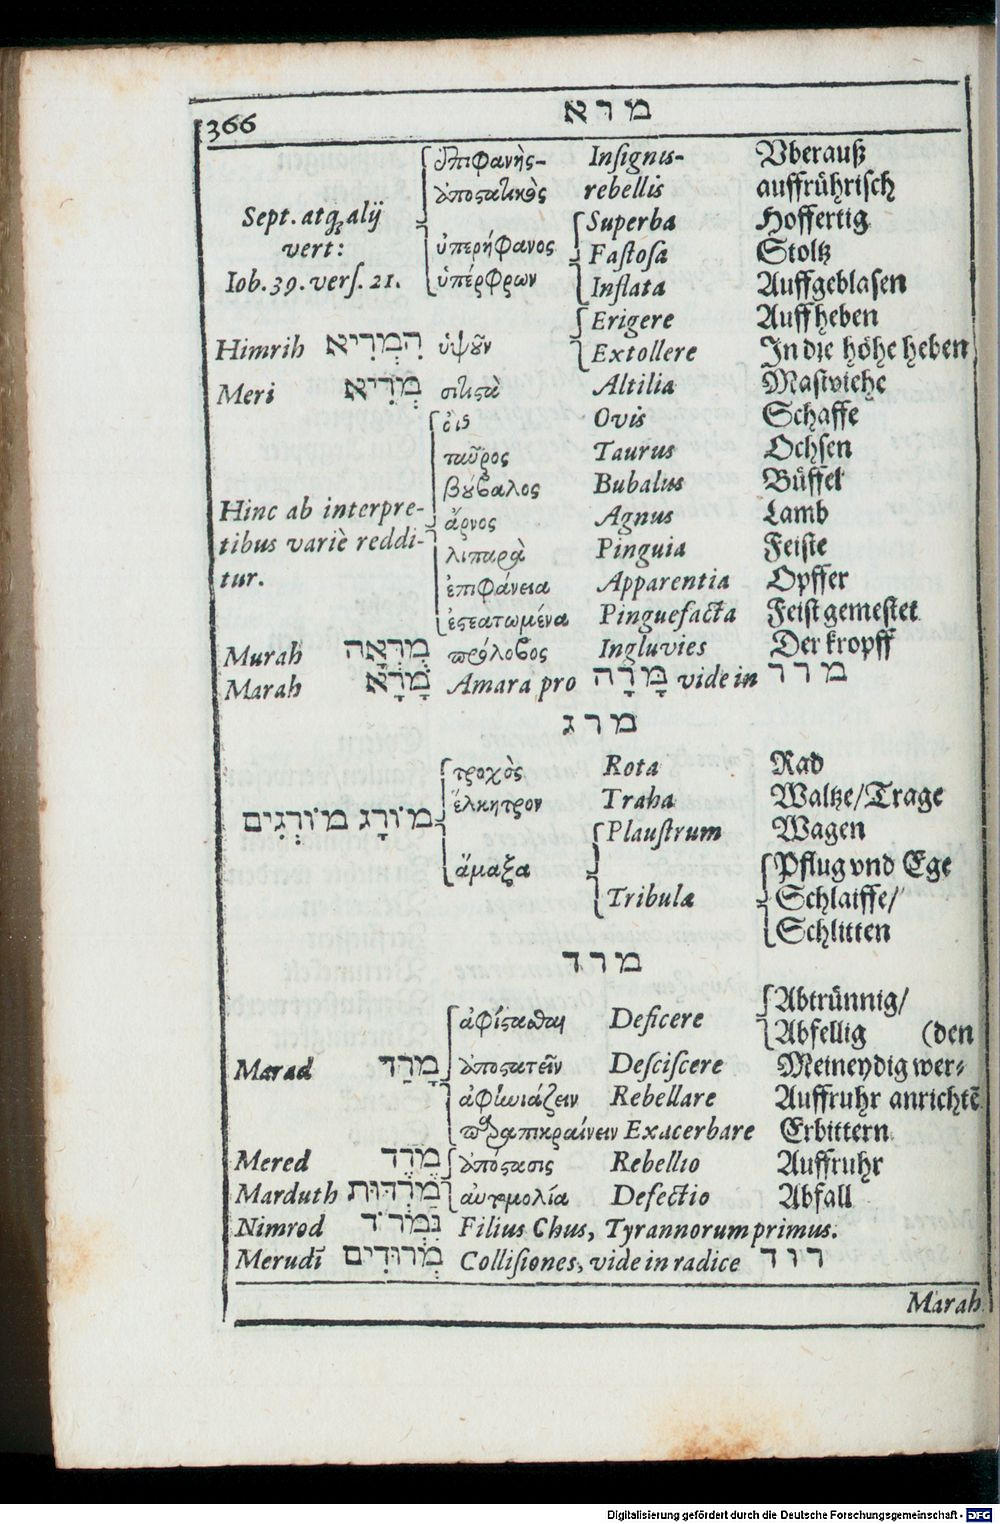 366
מרא
ἐπιφανὴς- Insignis- Vberauß
ἀποστατικὸς rebellis auffrührisch
Sept. atq; alij
vert:
Iob. 39. vers. 21.
ὑπερήφανος Superba Hoffertig
Fastosa Stoltz
ὑπέρφρων Inflata Auffgeblasen
Erigere Auffheben
Himrih הִמְרִיא ὑψοῦν Extollere In die höhe heben
Meri מְרִיא σιτιστὰ Altilia Mastviehe
Hinc ab interpre-
tibus variè reddi-
tur.
ὄϊς Ovis Schaffe
ταῦρος Taurus Ochsen
βούβαλος Bubalus Büffel
ἄρνος Agnus Lamb
λιπαρὰ Pinguia Feiste
ἐπιφάνεια Apparentia Opffer
ἐστεατωμένα Pinguefacta Feist gemestet
Murah מֻרְאָה πρόλοβος Ingluvies Der kropff
Marah מָרָא Amara pro מָרָה vide in מרר
מרג
מוֹרָג מוֹרְגִים
τροχὸς Rota Rad
ἕλκητρον Traha Waltze/Trage
Plaustrum Wagen
ἅμαξα Pflug vnd Ege
Tribulæ Schlaiffe/
Schlitten
מרד
Abtrünnig/
ἀφίστασθαι Deficere Abfellig (den
Marad מָרַד ἀποστατεῖν Desciscere Meineydig wer-
ἀφηνιάζειν Rebellare Auffruhr anrichtē
παραπικραίνειν Exacerbare Erbittern
Mered מֶרֶד ἀπόστασις Rebellio Auffruhr
Marduth מַרְדּוּת αὐτομολία Defectio Abfall
Nimrod נִמְרֹד Filius Chus, Tyrannorum primus.
Merudī מְרוּדִים Collisiones, vide in radice רוד
Marah
Digitalisierung gefördert durch die Deutsche Forschungsgemeinschaft - DFG